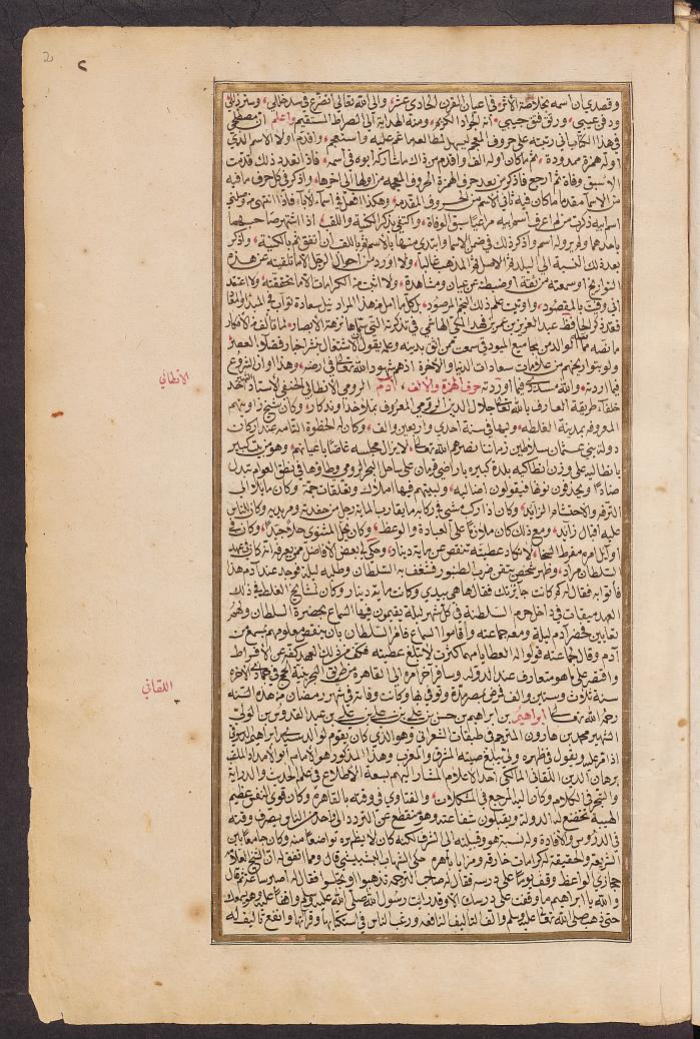 2
٢
وقصدي بان اسمه بخلاصة الأثر في اعيان القرن الحادي عشر والى الله تعالى اتضرع في سد خللي وستر زللي
ورفع عيبي ورتق فتق جيبي انه الجواد الكريم ومنه الهداية الى الصراط المستقيم واعلم انى
في هذا الكتاب انى رتبته على حروف المعجم ليسهل المطالعه اعم عليه واستعجم واقدم اولا الاسم الذي
اوله همزة ممدودة ثم ما كان اوله الف واقدم من ذاك ما شارك ابوه في اسمه فاذا تعدد ذلك قدمت
الاسبق وفاة ثم ارجع فاذكر من بعد حرف الهمزة الحروف المعجمه من اولها الى اخرها واذكر في كل حرف ما فيه
من الاسماء مقدما ما كان فيه ثانى الاسم من الحروف المقدمه وهكذا افعل في اسماء الاباء فاذا انتهى من وصلتى
اسما ابيه ذكرت من لم اعرف اسم ابيه مراعيا سبق الوفاة واكتفى بذكر الكنية واللقب اذا اشتهر صاحبهما
باحدهما ولم يرو له اسم واذكر ذلك في ضمن الاسما وابتدى منها بالاسم ثم باللقب ان اتفق ثم بالكنية واذكر
بعد ذلك النسبة الى البلد ثم الاصل ثم المذهب غالبا ولا اورد من احوال الرجل الا ما تلقيته عن هذه
التواريخ او سمعته من ثقة او ضبطته عن عيان ومشاهدة ولا اثبت من الكرامات الا ما تحققته ولا اعتقد
انى وفيت بالمقصود واوتيت علم ذلك النجم المرصود بل كما امل من هذا المراد نيل سعادة ثواب في المبدا والمعاد
فقد ذكر الحافظ عبد العزيز بن عمر بن فهد المكي الهاشمي في تذكرته التي سماها نزهة الابصار لما تألف من الافكار
ما نصه قال الوالد من مجاميع الميورقي سمعت ممن اثق بدينه وعلمه يقول الاشتغال بنشر اخبار فضلاء العصر
ولو بتواريخهم من علامات سعادات الدنيا والاخرة اذ هم شهود الله تعالى في ارضه وهذا اوان الشروع
فيما اردته والله مسددى فيما اوردته حرف الهمزة والالف آدم الرومي الانطالي الحنفي الاستاذ الشيخ احد
خلفاء طريقة العارف بالله تعالى جلال الدين الرومي المعروف بملا خداوندكار وكان شيخ زاويتهم
المعروفه بمدينة الغلطه وليها في سنة احدى واربعين والف وكان له الحظوة التامة عند اركان
دولة بني عثمان سلاطين زماننا نصرهم الله تعالى لا يزال مجلسه غاصا باعيانهم وهو من بيت كبير
بانطاليه على وزن انطاكيه بلدة كبيره باراضي قرمان على ساحل البحر الرومى وطاؤها في نطق العوام تبدل
ضادا ويحذفون نونها فيقولون اضاليه ولبيتهم فيها املاك وتعلقات جمة وكان مائلا الى
الترفه والاحتشام الزائد وكان اذا ركب مشى في ركابه ما يقارب المائة رجل من حفدته ومريديه وكان للناس
عليه اقبال زائد ومع ذلك كان ملازما على العبادة والوعظ وكان يحل المثنوى حلا جيدا وكان في
اوائل امره مفرط السخا لا تكاد عطيته تنقص عن مائة دينار وحكى لي بعض الافاضل ممن يعرفه انه كان في عهد
السلطان مراد وظهر شخص يتقن ضرب الطنبور فشغف به السلطان وطلبه ليلة فوجد عند آدم هذا
فأتوا به فقال له كم كانت جائزتك فقال ها هي بيدي وكانت مائة دينار وكان لمشايخ الغلطه في ذلك
العهد ميقات في داخل حرم السلطنه في كل شهر ليلة يقيمون فيها السماع بحضرة السلطان ولهم
تعايين فحضر آدم ليلة ومعه جماعته واقاموا السماع فامر السلطان بان ينقص معلومهم بمسمع من
آدم وقال لجماعته قولوا له العطايا مهما كثرت لا تبلغ عطيته فكف من ذلك العهد كفه عن الافراط
واقتصر على ما هو متعارف عند الدولة وسافر آخر امره الى القاهره من طريق البحر بنية الحج في جمادى الاخره
سنة ثلاث وستين والف فمرض بمصر مدة وتوفي بها وكانت وفاته في شهر رمضان من هذه السنه
رحمه الله تعالى ابراهيم بن ابراهيم بن حسن بن علي بن علي بن علي بن عبد القدوس بن الولي
الشهير محمد بن هارون المترجم في طبقات الشعراني وهو الذي كان يقوم لوالد سيدي ابراهيم الدسوقي
اذا مر عليه ويقول في ظهره ولي يبلغ صيته المشرق والمغرب وهذا المذكور هو الامام ابو الامداد الملقب
برهان الدين اللقاني المالكي احد الاعلام المشار اليهم بسعة الاطلاع في علم الحديث والدراية
والتبحر في الكلام وكان اليه المرجع في المشكلات والفتاوي في وقته بالقاهرة وكان قوي النفس عظيم
الهيبة تخضع له الدولة ويقبلون شفاعته وهو منقطع عن التردد الى واحد من الناس يصرف وقته
في الدروس والافادة وله نسبة هو وقبيلته الى الشرف لكنه كان لا يظهره تواضعا منه وكان جامعا بين
الشريعة والحقيقة له كرامات خارقة ومزايا باهره حكى الشهاب البشبيشي قال ومما اتفق له ان الشيخ العلامه
حجازي الواعظ وقف يوما على درسه فقال له صاحب الترجمه تذهبوا او تجلسوا فقال له اصبر ساعة ثم قال
والله يا ابراهيم ما وقفت على درسك الا وقد رايت رسول الله صلى الله عليه وسلم واقفا عليه وهو يسمعك
حتى ذهب صلى الله تعالى عليه وسلم والف التآليف النافعه ورغب الناس في استكتابها وقراتها وانفع تآليف له
الأنطالي
اللقاني